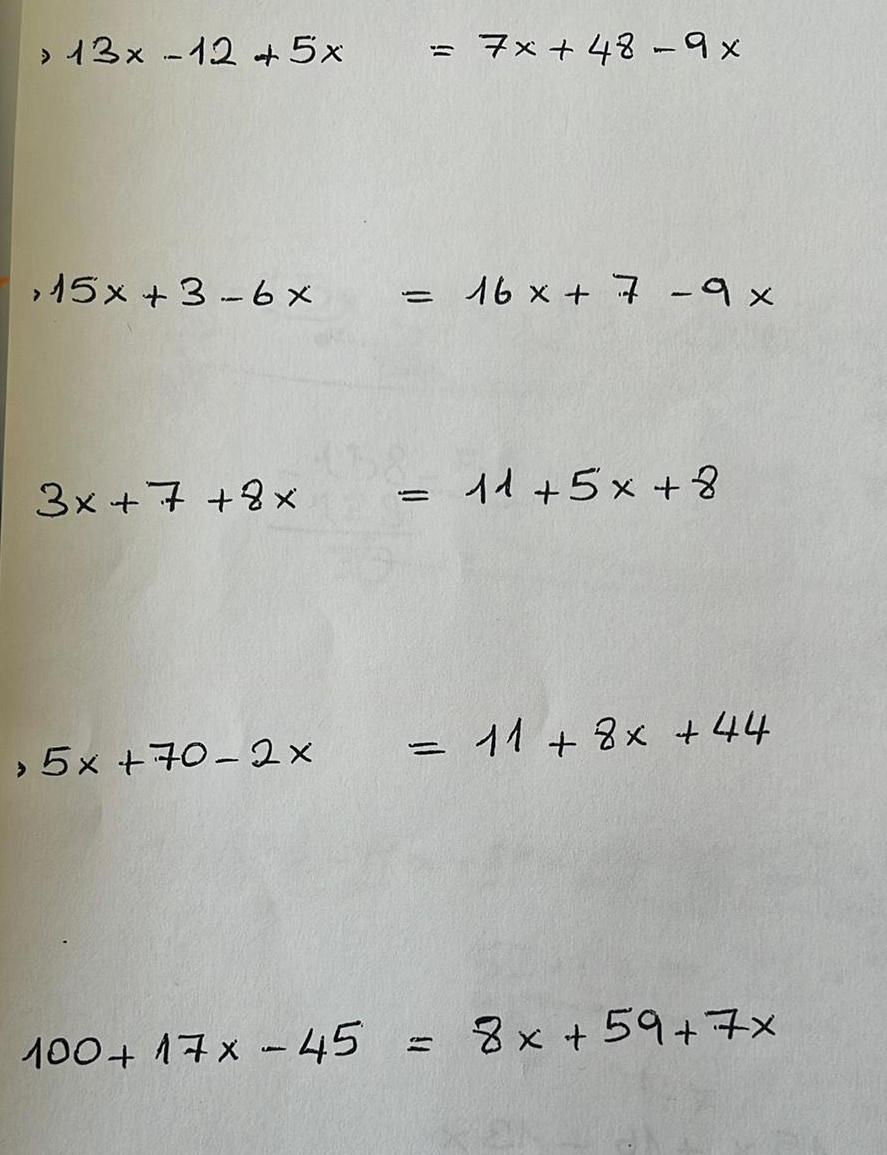 , 13x - 12 + 5x = 7x + 48 - 9x
, 15x + 3 - 6x = 16x + 7 - 9x
3x + 7 + 8x = 11 + 5x + 8
, 5x + 70 - 2x = 11 + 8x + 44
100 + 17x - 45 = 8x + 59 + 7x